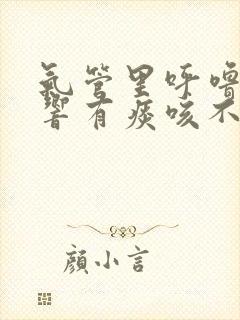 氣管里呼嚕
響有痰咳不
顏小言